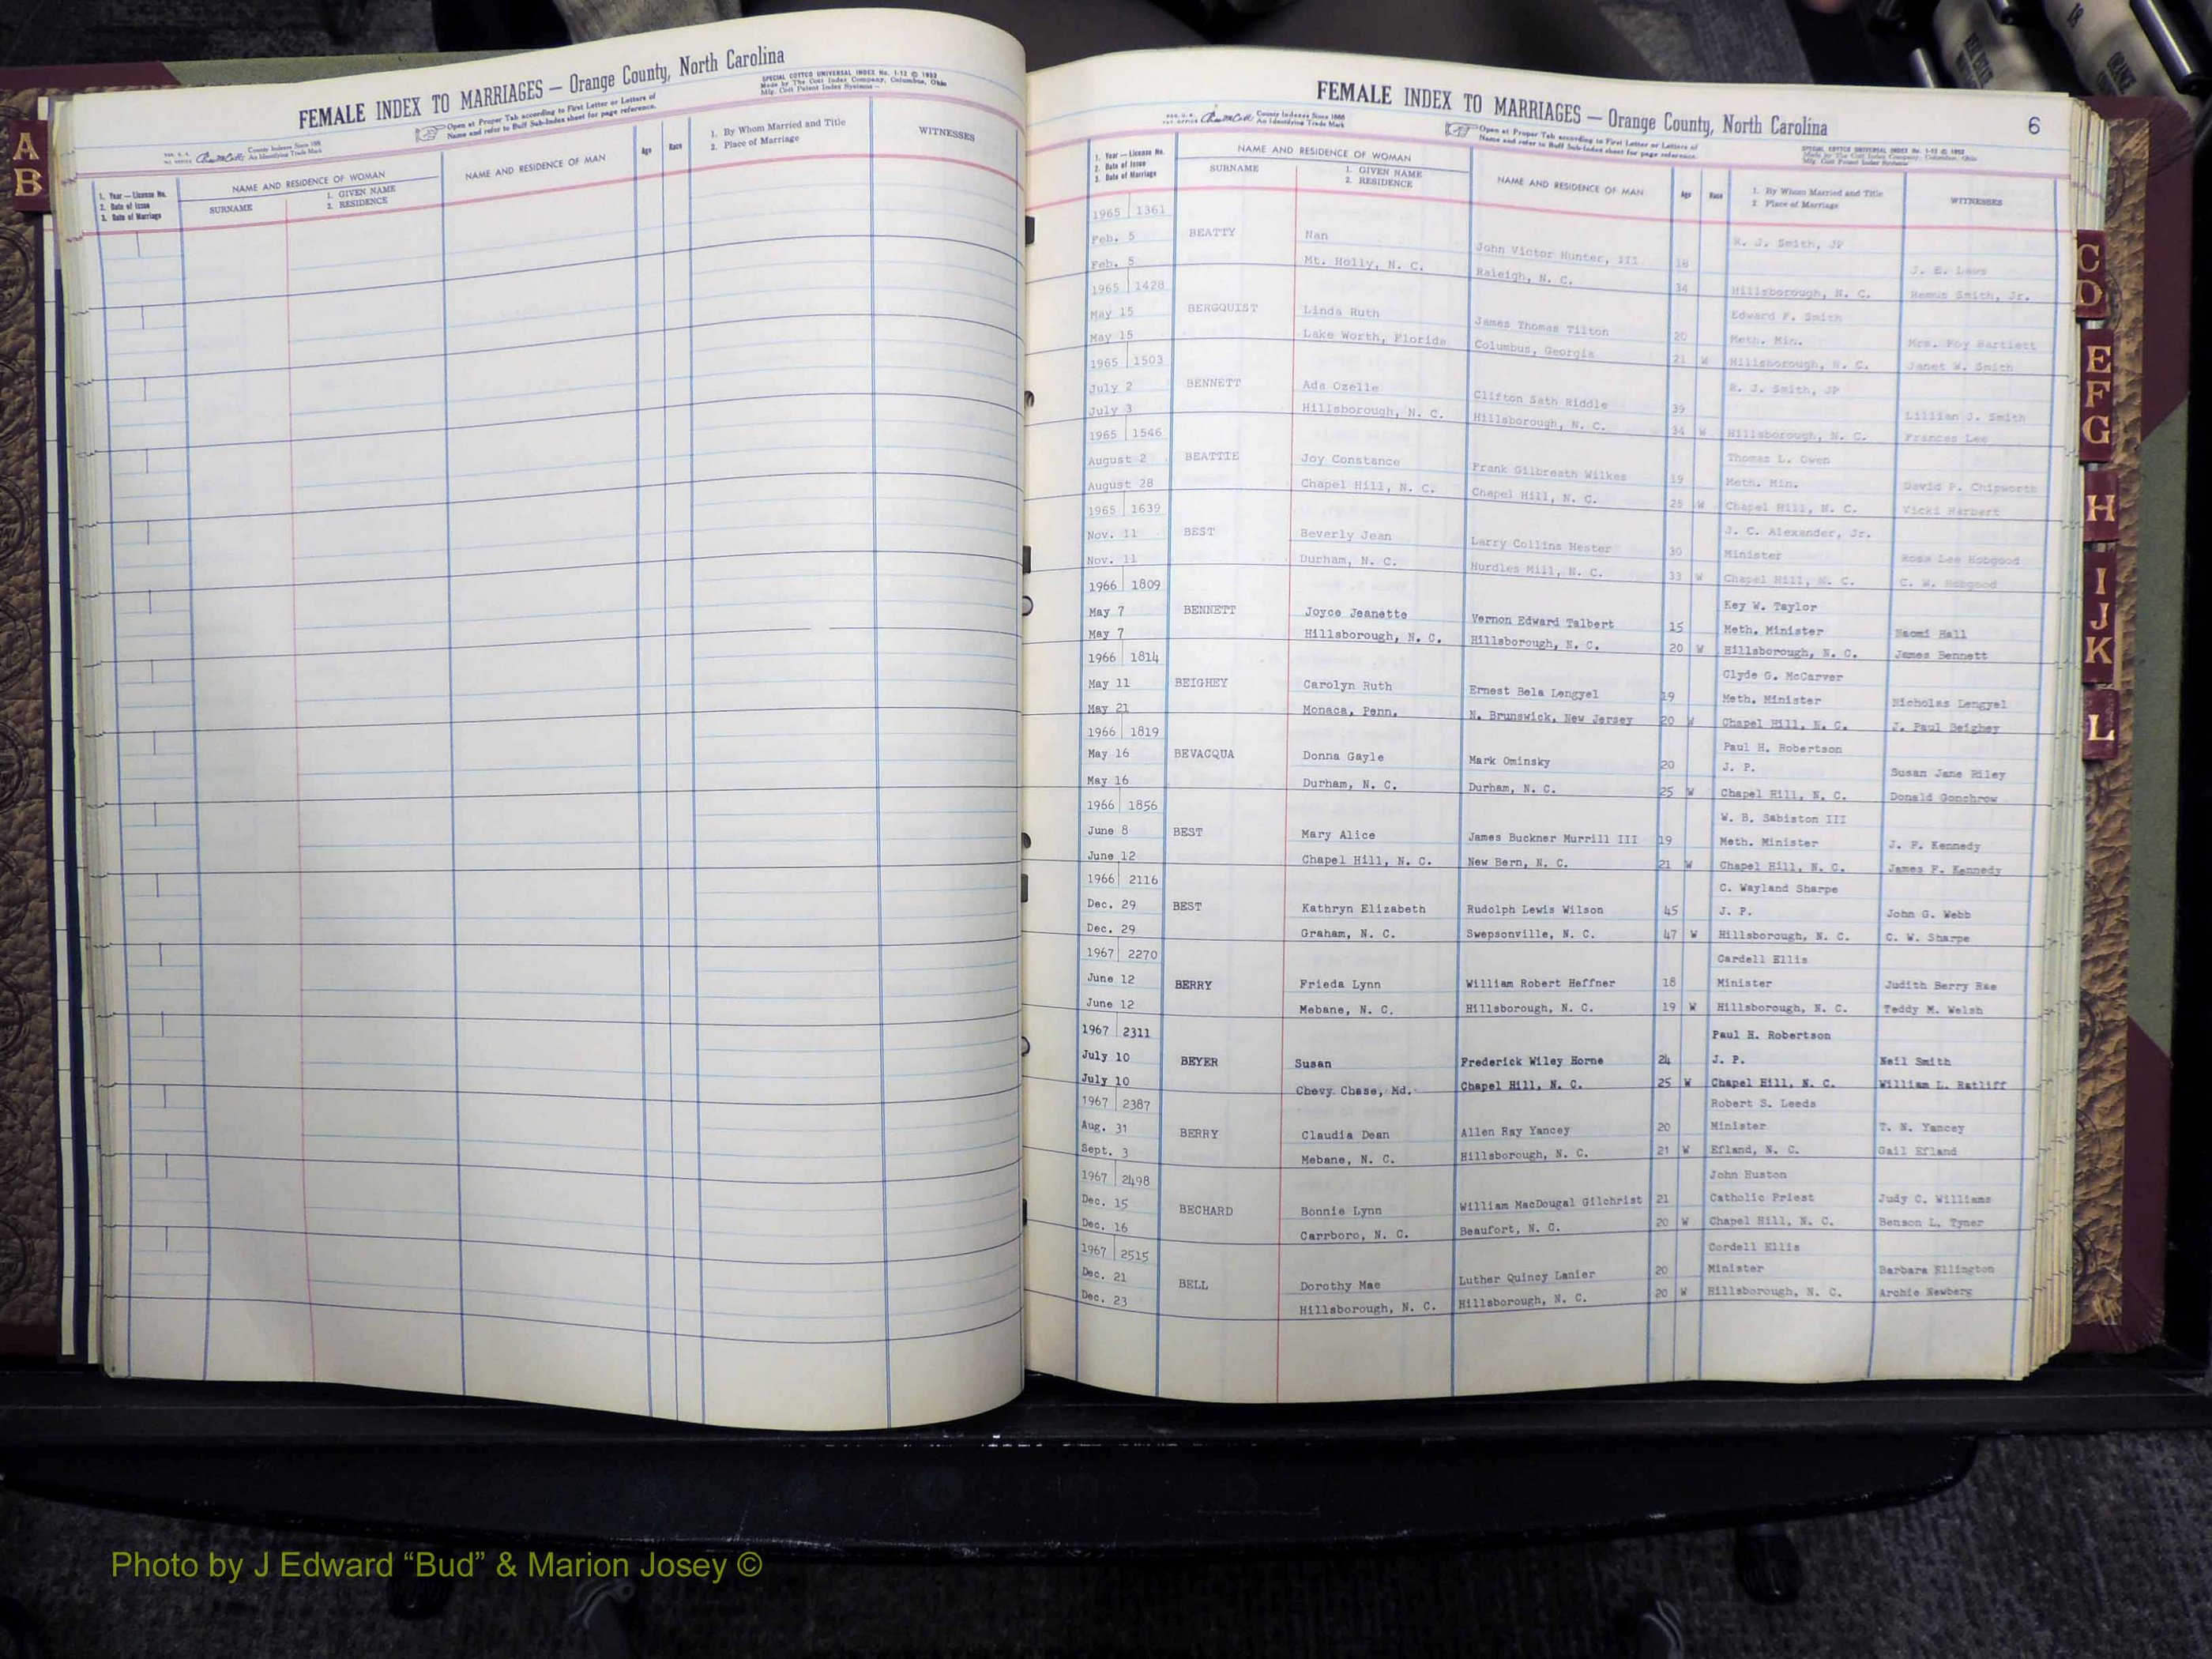 FEMALE INDEX TO MARRIAGES — Orange County, North Carolina
Open at Proper Tab according to First Letter or Letters of
Name and refer to Buff Sub-Index sheet for page reference.
SPECIAL COTTCO UNIVERSAL INDEX No. 1-12 © 1952
Made by The Cott Index Company, Columbus, Ohio
Mfg. Cott Patent Index Systems
County Indexes Since 1888
An Identifying Trade Mark
1. Year — License No.
2. Date of Issue
3. Date of Marriage
NAME AND RESIDENCE OF WOMAN
SURNAME
1. GIVEN NAME
2. RESIDENCE
NAME AND RESIDENCE OF MAN
Age
Race
1. By Whom Married and Title
2. Place of Marriage
WITNESSES
A
B
FEMALE INDEX TO MARRIAGES — Orange County, North Carolina
6
County Indexes Since 1888
An Identifying Trade Mark
Open at Proper Tab according to First Letter or Letters of
Name and refer to Buff Sub-Index sheet for page reference.
SPECIAL COTTCO UNIVERSAL INDEX No. 1-12 © 1952
Made by The Cott Index Company, Columbus, Ohio
Mfg. Cott Patent Index Systems
1. Year — License No.
2. Date of Issue
3. Date of Marriage
NAME AND RESIDENCE OF WOMAN
SURNAME
1. GIVEN NAME
2. RESIDENCE
NAME AND RESIDENCE OF MAN
Age
Race
1. By Whom Married and Title
2. Place of Marriage
WITNESSES
1965 1361 R. J. Smith, JP
Feb. 5 BEATTY Nan John Victor Hunter, III 18 J. E. Laws
Feb. 5 Mt. Holly, N. C. Raleigh, N. C. 34 Hillsborough, N. C. Remus Smith, Jr.
1965 1428 Edward F. Smith
May 15 BERGQUIST Linda Ruth James Thomas Tilton 20 Meth. Min. Mrs. Roy Bartlett
May 15 Lake Worth, Florida Columbus, Georgia 21 W Hillsborough, N. C. Janet W. Smith
1965 1503 R. J. Smith, JP
July 2 BENNETT Ada Ozelle Clifton Sath Riddle 39 Lillian J. Smith
July 3 Hillsborough, N. C. Hillsborough, N. C. 34 W Hillsborough, N. C. Frances Lee
1965 1546 Thomas L. Owen
August 2 BEATTIE Joy Constance Frank Gilbreath Wilkes 19 Meth. Min. David P. Chipworth
August 28 Chapel Hill, N. C. Chapel Hill, N. C. 25 W Chapel Hill, N. C. Vicki Harbert
1965 1639 J. C. Alexander, Jr.
Nov. 11 BEST Beverly Jean Larry Collins Hester 30 Minister Rosa Lee Hobgood
Nov. 11 Durham, N. C. Hurdles Mill, N. C. 33 W Chapel Hill, N. C. C. W. Hobgood
1966 1809 Key W. Taylor
May 7 BENNETT Joyce Jeanette Vernon Edward Talbert 15 Meth. Minister Naomi Hall
May 7 Hillsborough, N. C. Hillsborough, N. C. 20 W Hillsborough, N. C. James Bennett
1966 1814 Clyde G. McCarver
May 11 BEIGHEY Carolyn Ruth Ernest Bela Lengyel 19 Meth. Minister Nicholas Lengyel
May 21 Monaca, Penn. N. Brunswick, New Jersey 20 W Chapel Hill, N. C. J. Paul Beighey
1966 1819 Paul H. Robertson
May 16 BEVACQUA Donna Gayle Mark Ominsky 20 J. P. Susan Jane Riley
May 16 Durham, N. C. Durham, N. C. 25 W Chapel Hill, N. C. Donald Gonchrow
1966 1856 W. B. Sabiston III
June 8 BEST Mary Alice James Buckner Murrill III 19 Meth. Minister J. F. Kennedy
June 12 Chapel Hill, N. C. New Bern, N. C. 21 W Chapel Hill, N. C. James F. Kennedy
1966 2116 C. Wayland Sharpe
Dec. 29 BEST Kathryn Elizabeth Rudolph Lewis Wilson 45 J. P. John G. Webb
Dec. 29 Graham, N. C. Swepsonville, N. C. 47 W Hillsborough, N. C. C. W. Sharpe
1967 2270 Cardell Ellis
June 12 BERRY Frieda Lynn William Robert Heffner 18 Minister Judith Berry Rae
June 12 Mebane, N. C. Hillsborough, N. C. 19 W Hillsborough, N. C. Teddy M. Welsh
1967 2311 Paul H. Robertson
July 10 BEYER Susan Frederick Wiley Horne 24 J. P. Neil Smith
July 10 Chevy Chase, Md. Chapel Hill, N. C. 25 W Chapel Hill, N. C. William L. Ratliff
1967 2387 Robert S. Leeds
Aug. 31 BERRY Claudia Dean Allen Ray Yancey 20 Minister T. N. Yancey
Sept. 3 Mebane, N. C. Hillsborough, N. C. 21 W Efland, N. C. Gail Efland
1967 2498 John Huston
Dec. 15 BECHARD Bonnie Lynn William MacDougal Gilchrist 21 Catholic Priest Judy C. Williams
Dec. 16 Carrboro, N. C. Beaufort, N. C. 20 W Chapel Hill, N. C. Benson L. Tyner
1967 2515 Cordell Ellis
Dec. 21 BELL Dorothy Mae Luther Quincy Lanier 20 Minister Barbara Ellington
Dec. 23 Hillsborough, N. C. Hillsborough, N. C. 20 W Hillsborough, N. C. Archie Newberg
C
D
E
F
G
H
I
J
K
L
18
Photo by J Edward “Bud” & Marion Josey ©